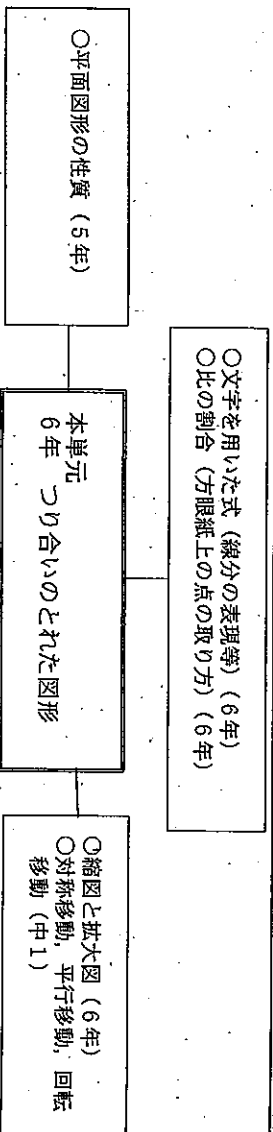 ○平面図形の性質（5年）
○文字を用いた式（線分の表現等）（6年）
○比の割合（方眼紙上の点の取り方）（6年）
本単元
6年　つり合いのとれた図形
○縮図と拡大図（6年）
○対称移動，平行移動，回転
移動（中1）